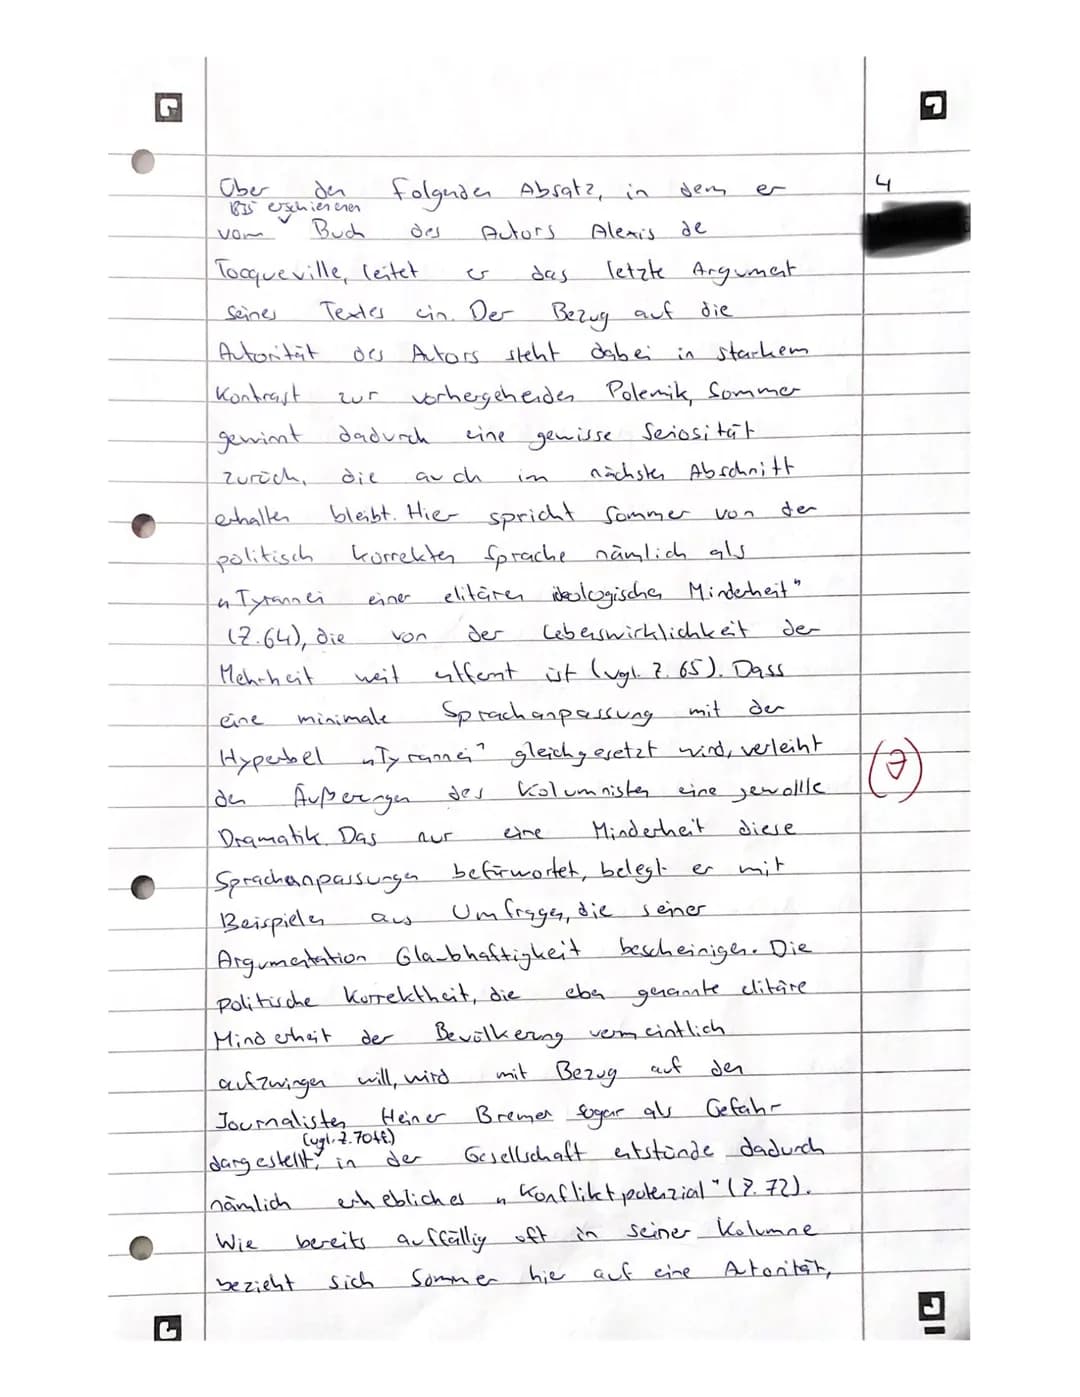 Über den folgenden Absatz, in dem er
4
1835 erschienenen
vom Buch des Autors Alexis de
Tocqueville, leitet er das letzte Argument
seines Textes ein. Der Bezug auf die
Autorität des Autors steht dabei in starkem
Kontrast zur vorhergehenden Polemik, Sommer
gewinnt dadurch eine gewisse Seriosität
zurück, die auch im nächsten Abschnitt
erhalten bleibt. Hier spricht Sommer von der
politisch korrekten Sprache nämlich als
"Tyrannei einer elitären ideologischen Minderheit"
(Z.64), die von der Lebenswirklichkeit der
Mehrheit weit entfernt ist (vgl. Z. 65). Dass
eine minimale Sprachanpassung mit der
Hyperbel "Tyrannei" gleichgesetzt wird, verleiht
den Äußerungen des Kolumnisten eine gewollte
Dramatik. Das nur eine Minderheit diese
Sprachanpassungen befürwortet, belegt er mit
Beispielen aus Umfragen, die seiner
Argumentation Glaubhaftigkeit bescheinigen. Die
politische Korrektheit, die eben genannte elitäre
Minderheit der Bevölkerung vermeintlich
aufzwingen will, wird mit Bezug auf den
Journalisten Heiner Bremer sogar als Gefahr
(vgl. Z. 70ff.)
dargestellt, in der Gesellschaft entstünde dadurch
nämlich erhebliches "Konfliktpotenzial" (Z. 72).
Wie bereits auffällig oft in seiner Kolumne
bezieht sich Sommer hie auf eine Autorität,